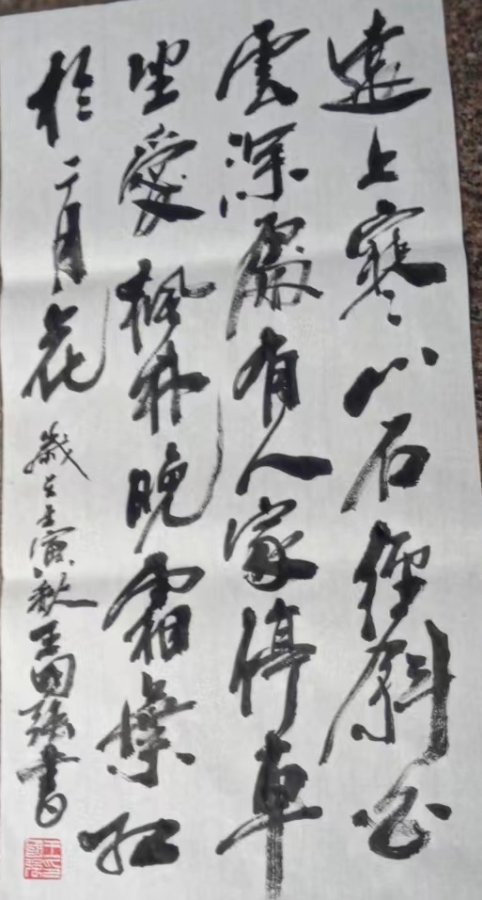 遠上寒山石徑斜白
雲深處有人家停車
坐愛楓林晚霜葉紅
於二月花
歲在壬寅秋王國強書